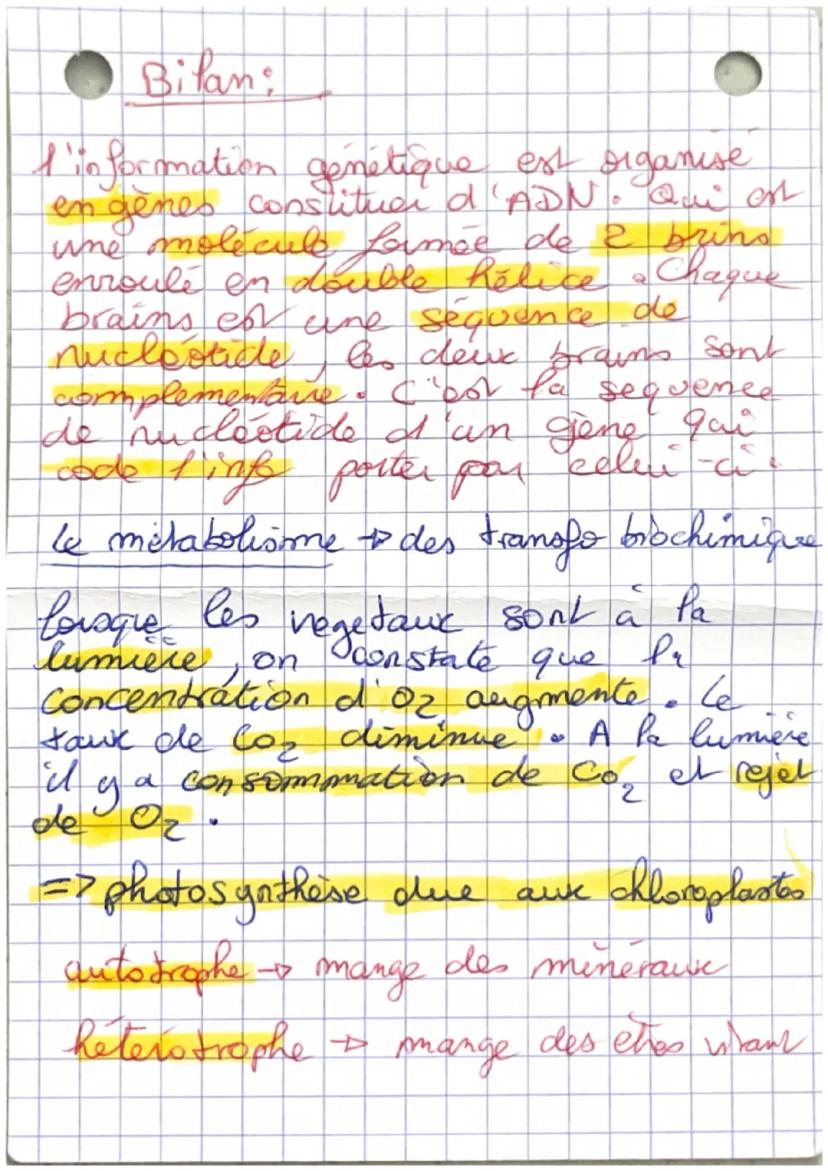 Bilan :
l'information génétique est organisé
en gènes constituer d'ADN. Qui est
une molécule formée de 2 brins
enroulé en double hélice. Chaque
brains est une séquence de
nucléotide, les deux brains sont
complementaire. C'est la sequence
de nucléotide d'un gène qui
code l'info porter par celui-ci.
Le métabolisme → des transfo biochimique
lorsque les vegetaux sont à la
lumière, on constate que la
concentration d'O2 augmente. Le
taux de CO2 diminue. A la lumière
il y a consommation de CO2 et rejet
de O2.
=> photosynthèse due aux chloroplastes
autotrophe → mange des minéraux
hétérotrophe → mange des êtres vivant